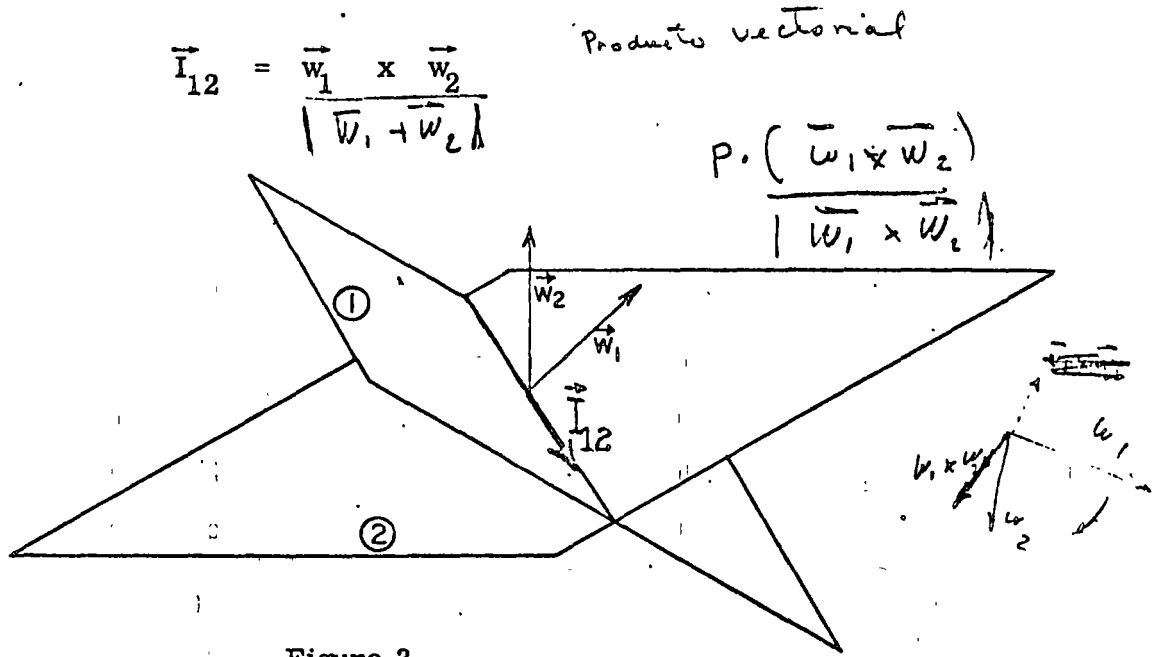 Producto vectorial
I⃗12 = w⃗1 x w⃗2
| W̄1 + W⃗2 |
P · ( w̄1 × w̄2 )
| w̄1 × w⃗2 |
①
w⃗2
w⃗1
I⃗12
w1
w1 × w2
w2
②
Figure 3